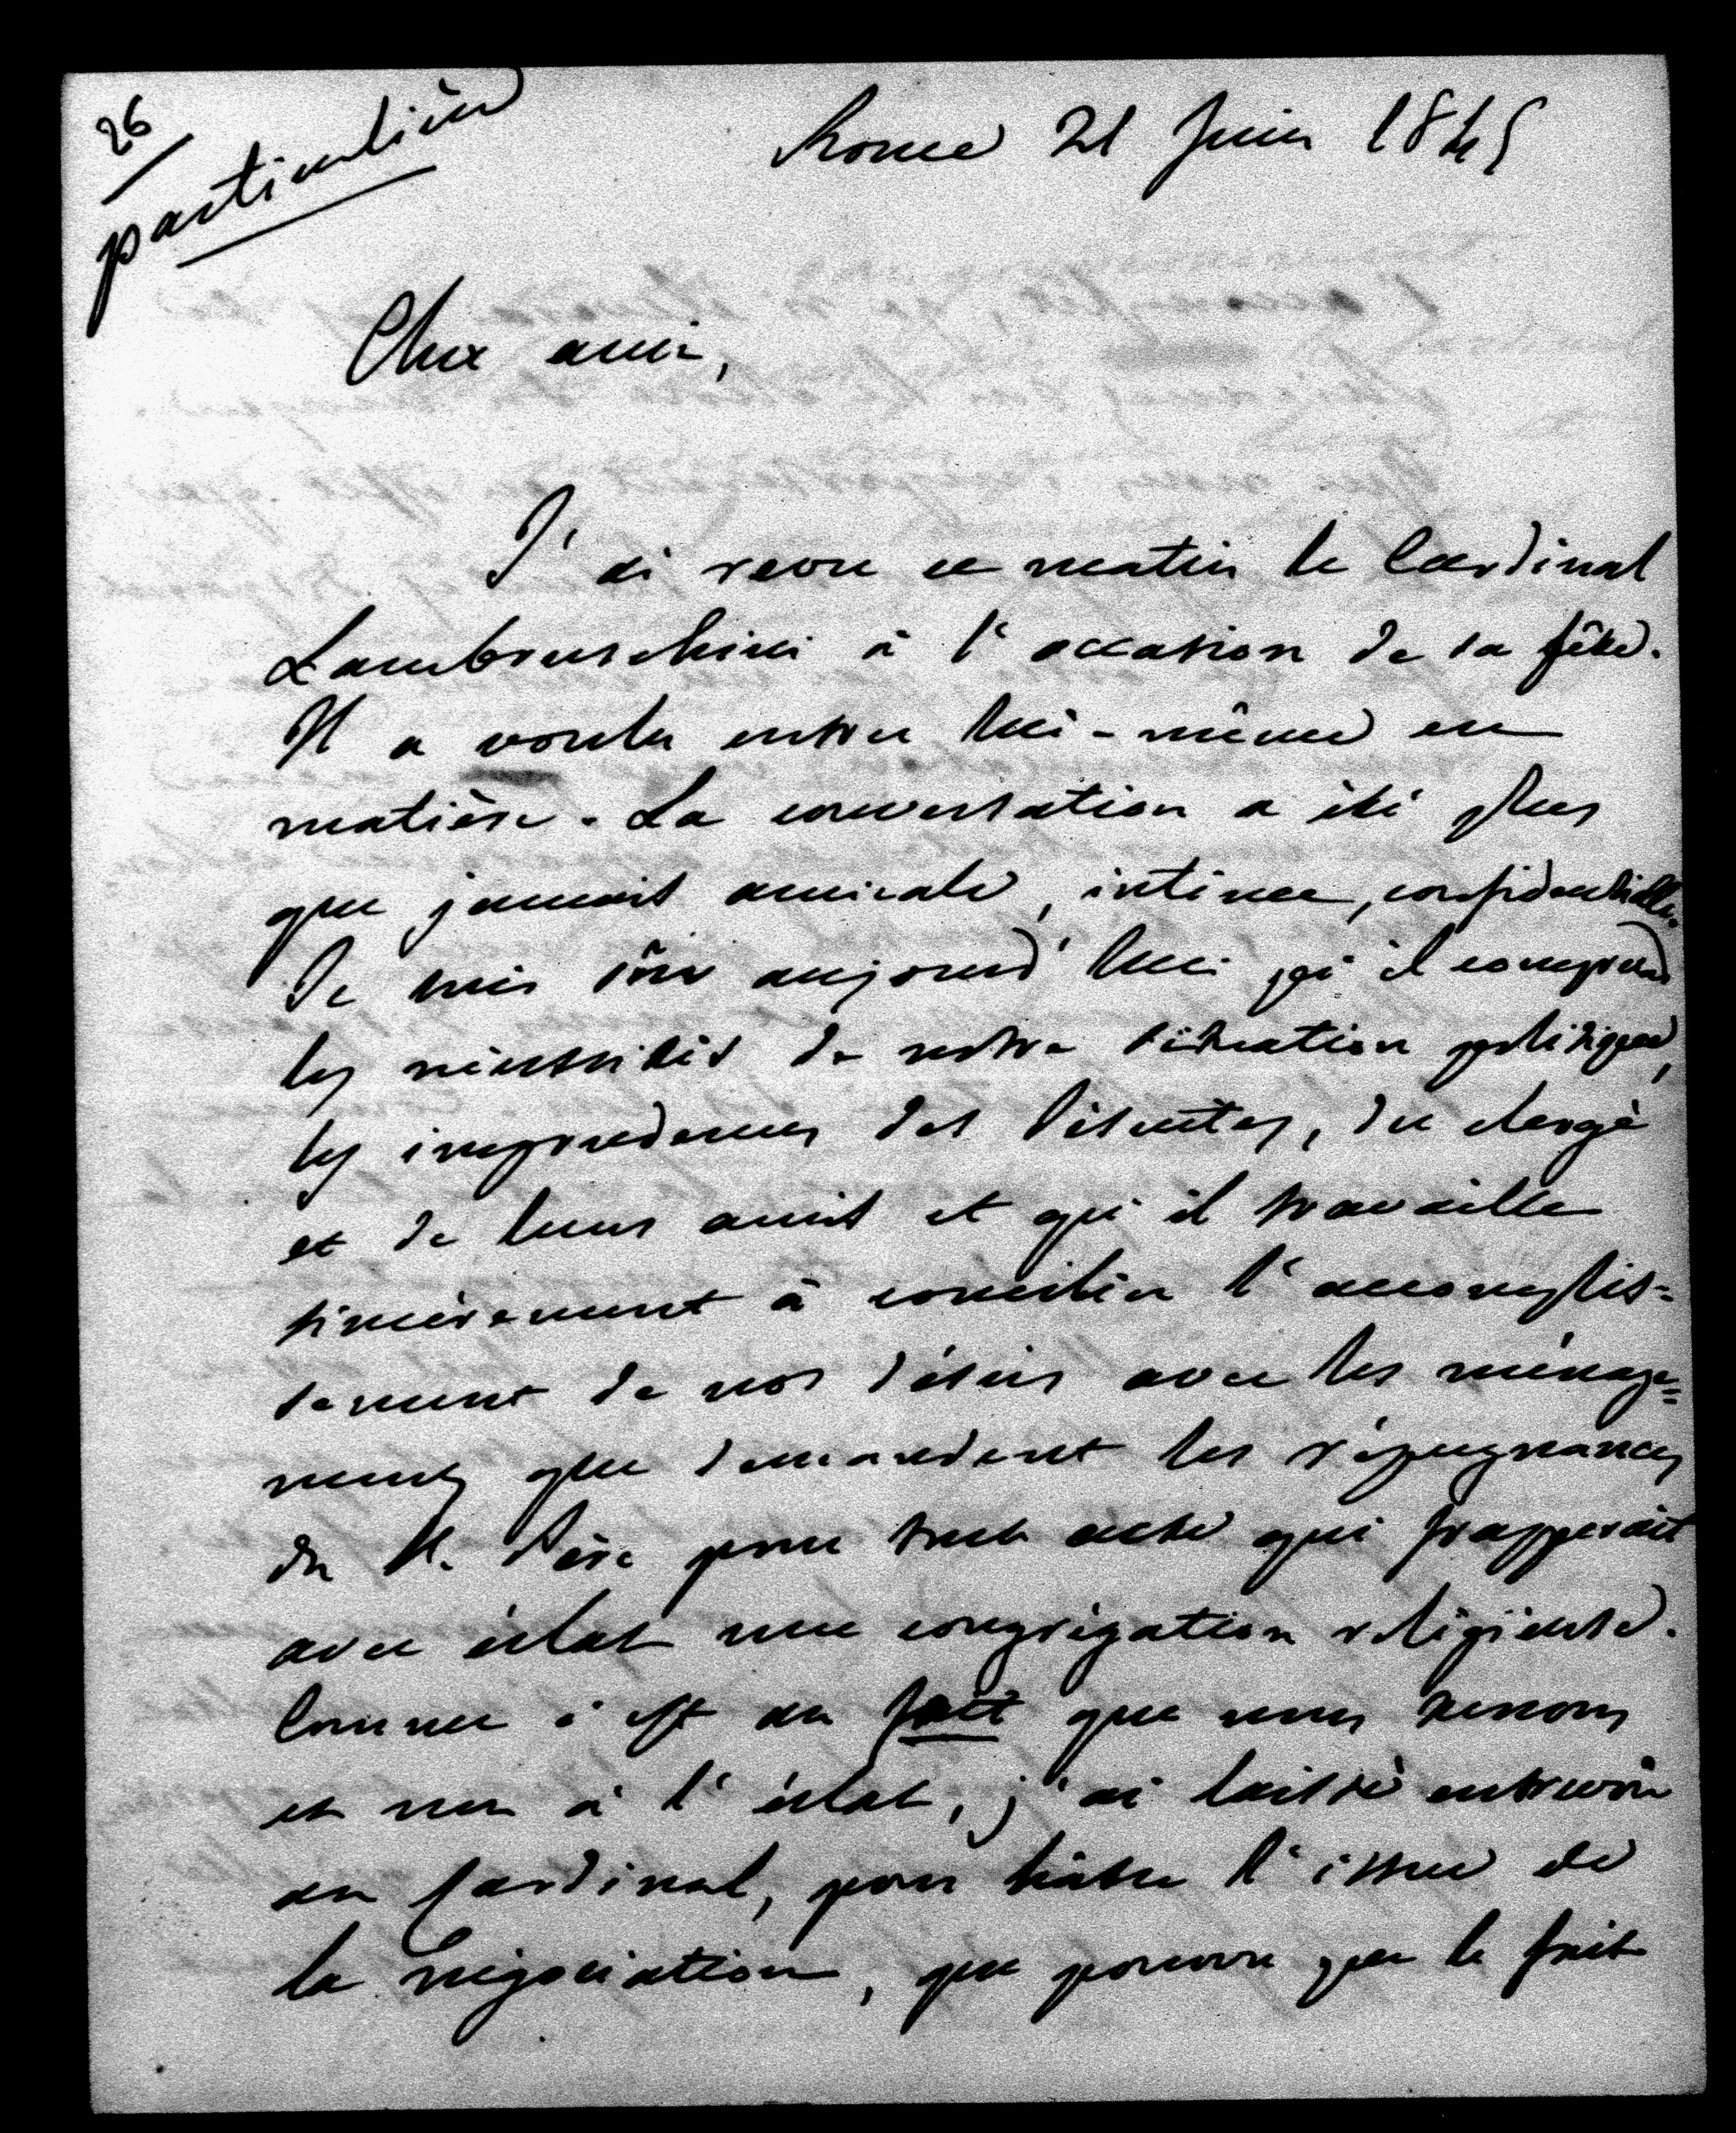 26
particulière
Rome 21 Juin 1845
Cher ami,
J'ai revu ce matin le Cardinal
Lambruschini à l'occasion de sa fête.
Il a voulu entrer lui-même en
matière. La conversation a été plus
que jamais amicale, intime, confidentielle.
Je suis sûr aujourd'hui qu'il comprend
les nécessités de notre situation politique,
les imprudences des Jésuites, du clergé
et de leurs amis et qu'il travaille
sincèrement à concilier l'accomplis=
sement de nos désirs avec les ménage=
ments que demandent les répugnances
du St. Père pour tout acte qui frapperait
avec éclat une congrégation religieuse.
Comme c'est au fait que nous tenons
et non à l'éclat, j'ai laissé entrevoir
au Cardinal, pour hâter l'issue de
la négociation, que pourvu que le fait